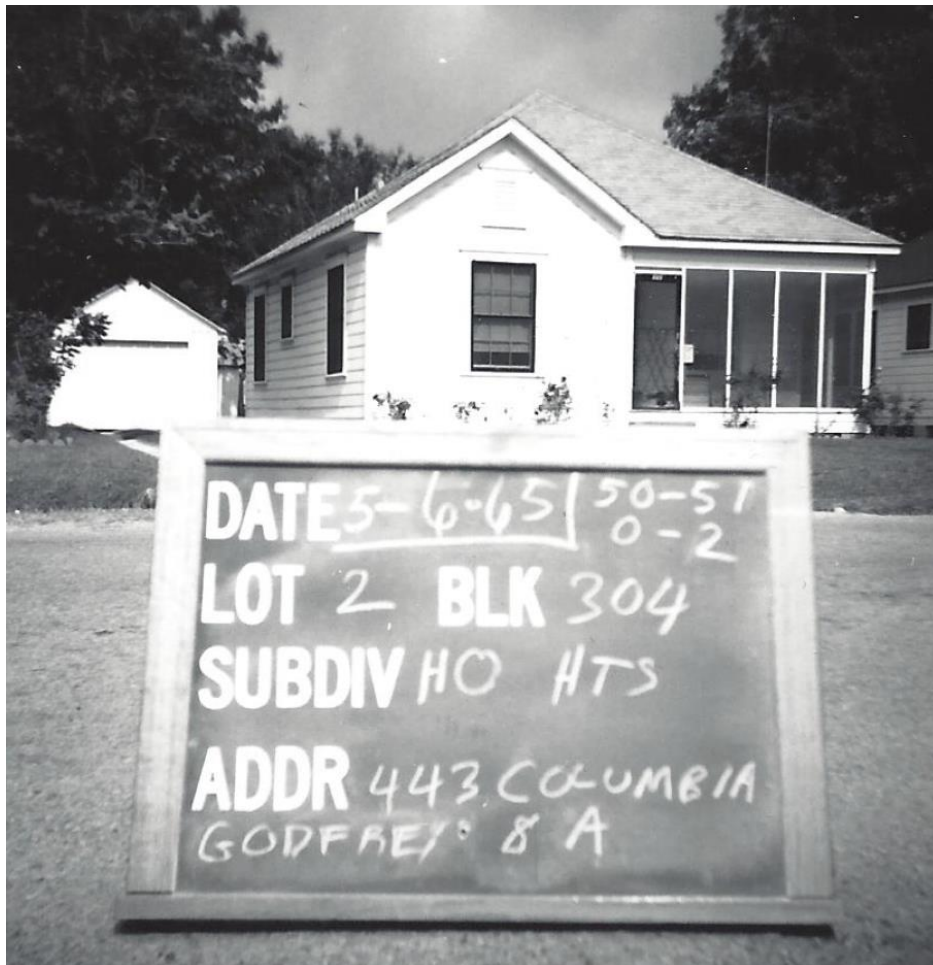 DATE 5-6-65 | 50-51
0-2
LOT 2 BLK 304
SUBDIV HO HTS
ADDR 443 COLUMBIA
GODFREY: 8 A